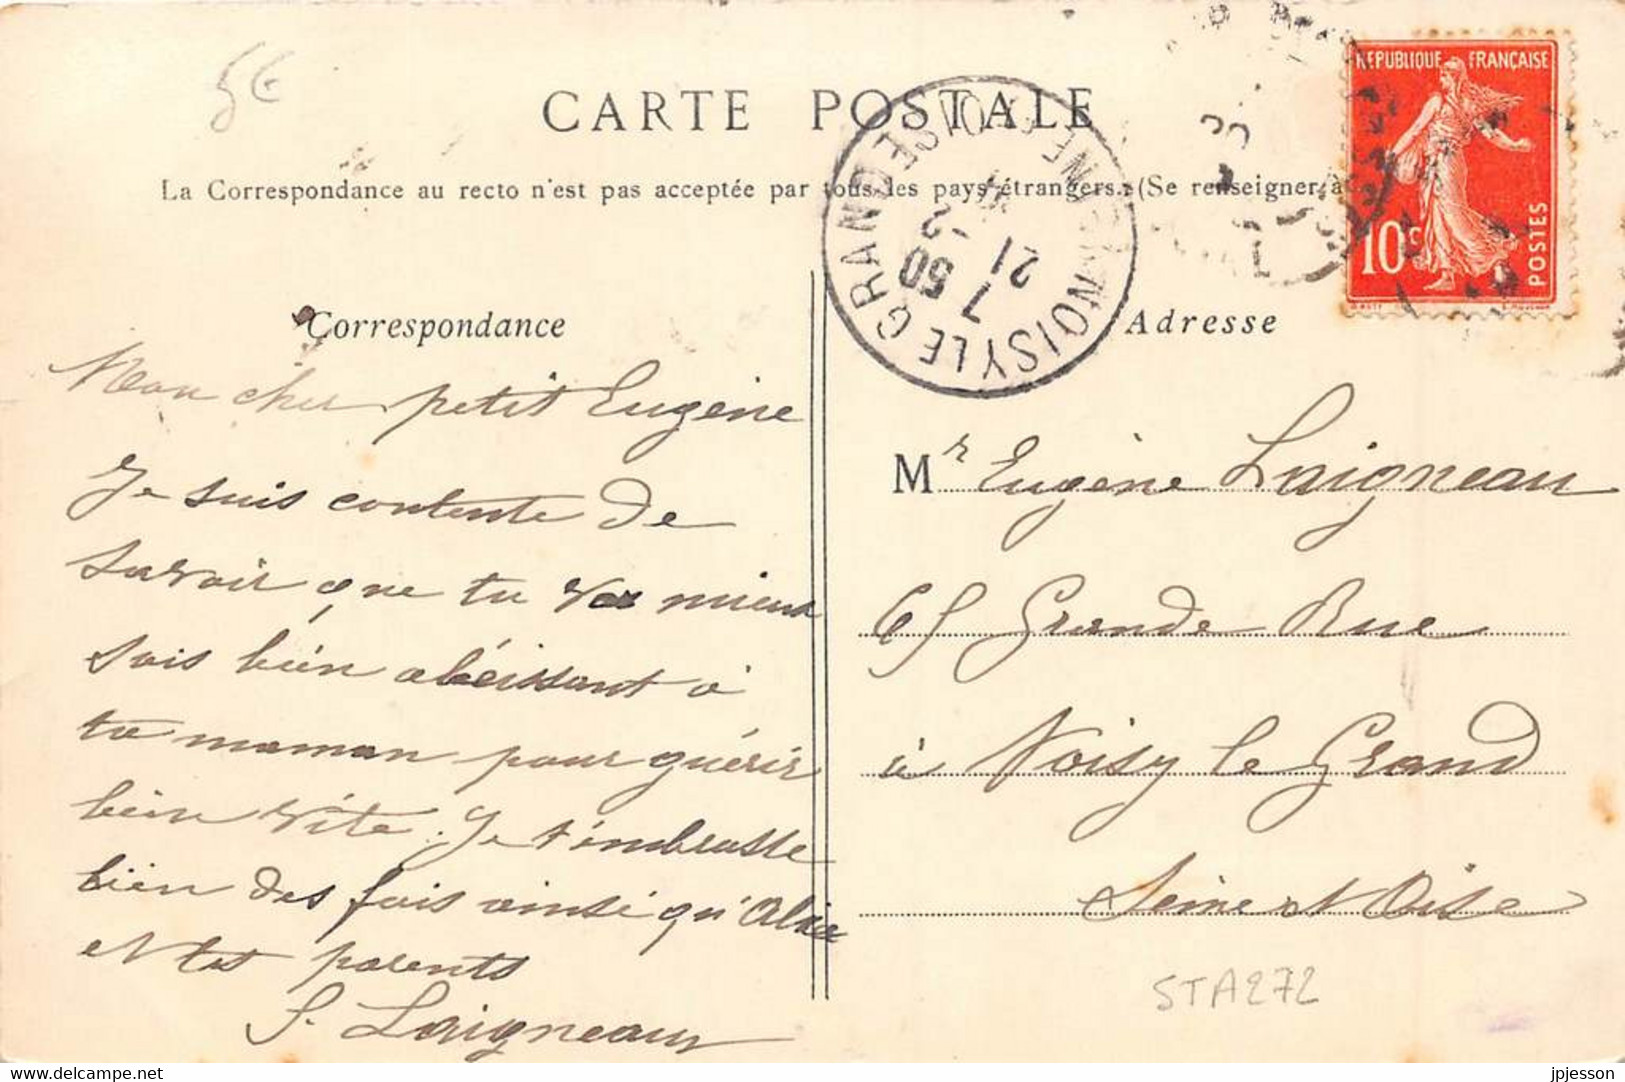 5€
CARTE POSTALE
La Correspondance au recto n'est pas acceptée par tous les pays étrangers. (Se renseigner à
REPUBLIQUE FRANÇAISE
10c
POSTES
NOISY LE GRAND SEINE-ET-OISE
7 50
21 -2
Correspondance
Mon cher petit Eugène
Je suis contente de
savoir que tu vas mieux
sois bien obéissant à
ta maman pour guérir
bien vite. Je t'embrasse
bien des fois ainsi qu'Alice
et tes parents
S. Laigneau
Adresse
Mr Eugène Laigneau
65 Grande Rue
à Noisy le Grand
Seine et Oise
STA272
www.delcampe.net
jpjesson